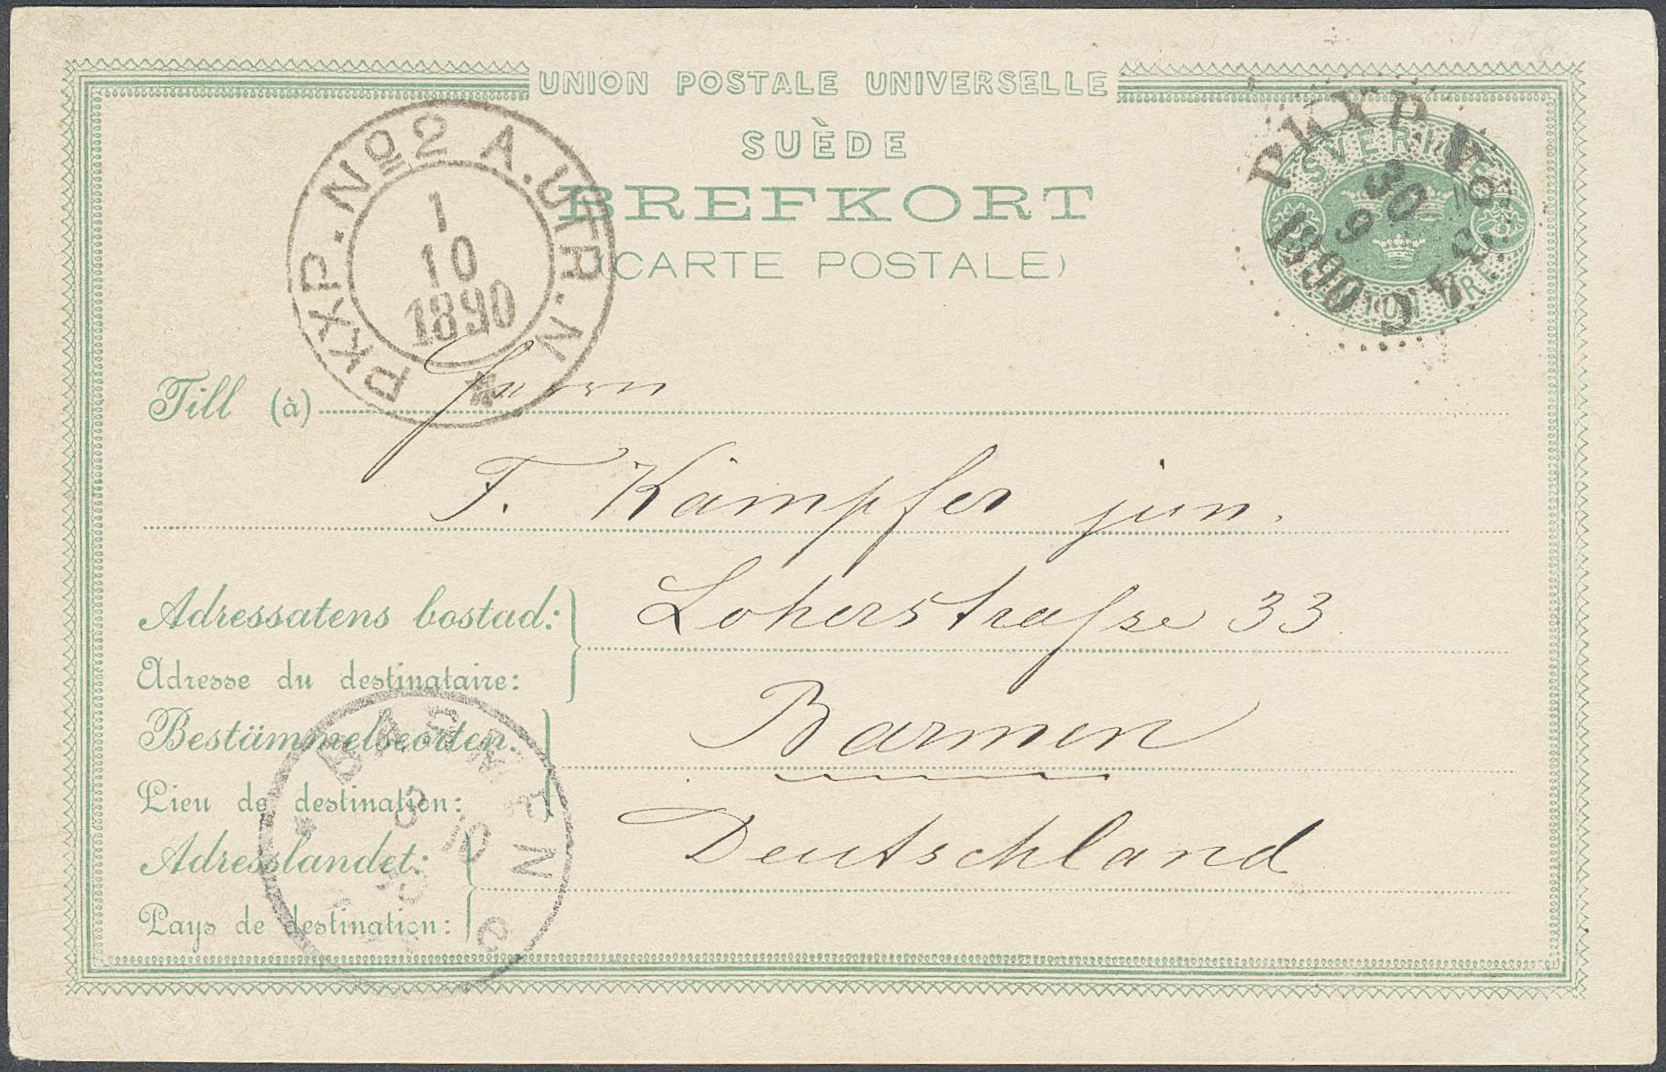 UNION POSTALE UNIVERSELLE
SUÈDE
BREFKORT
(CARTE POSTALE)
PKXP. No 2 A. UTR. N
1
10
1890
PKXP. No
30
9
1890
SVERIGE
TIO ÖRE
Till (à) Herrn
F. Kämpfer jun.
Adressatens bostad: Loherstraſse 33
Adresse du destinataire:
Bestämmelseorten: Barmen
Lieu de destination:
Adresslandet: Deutschland
Pays de destination:
BARMEN
3
10
90